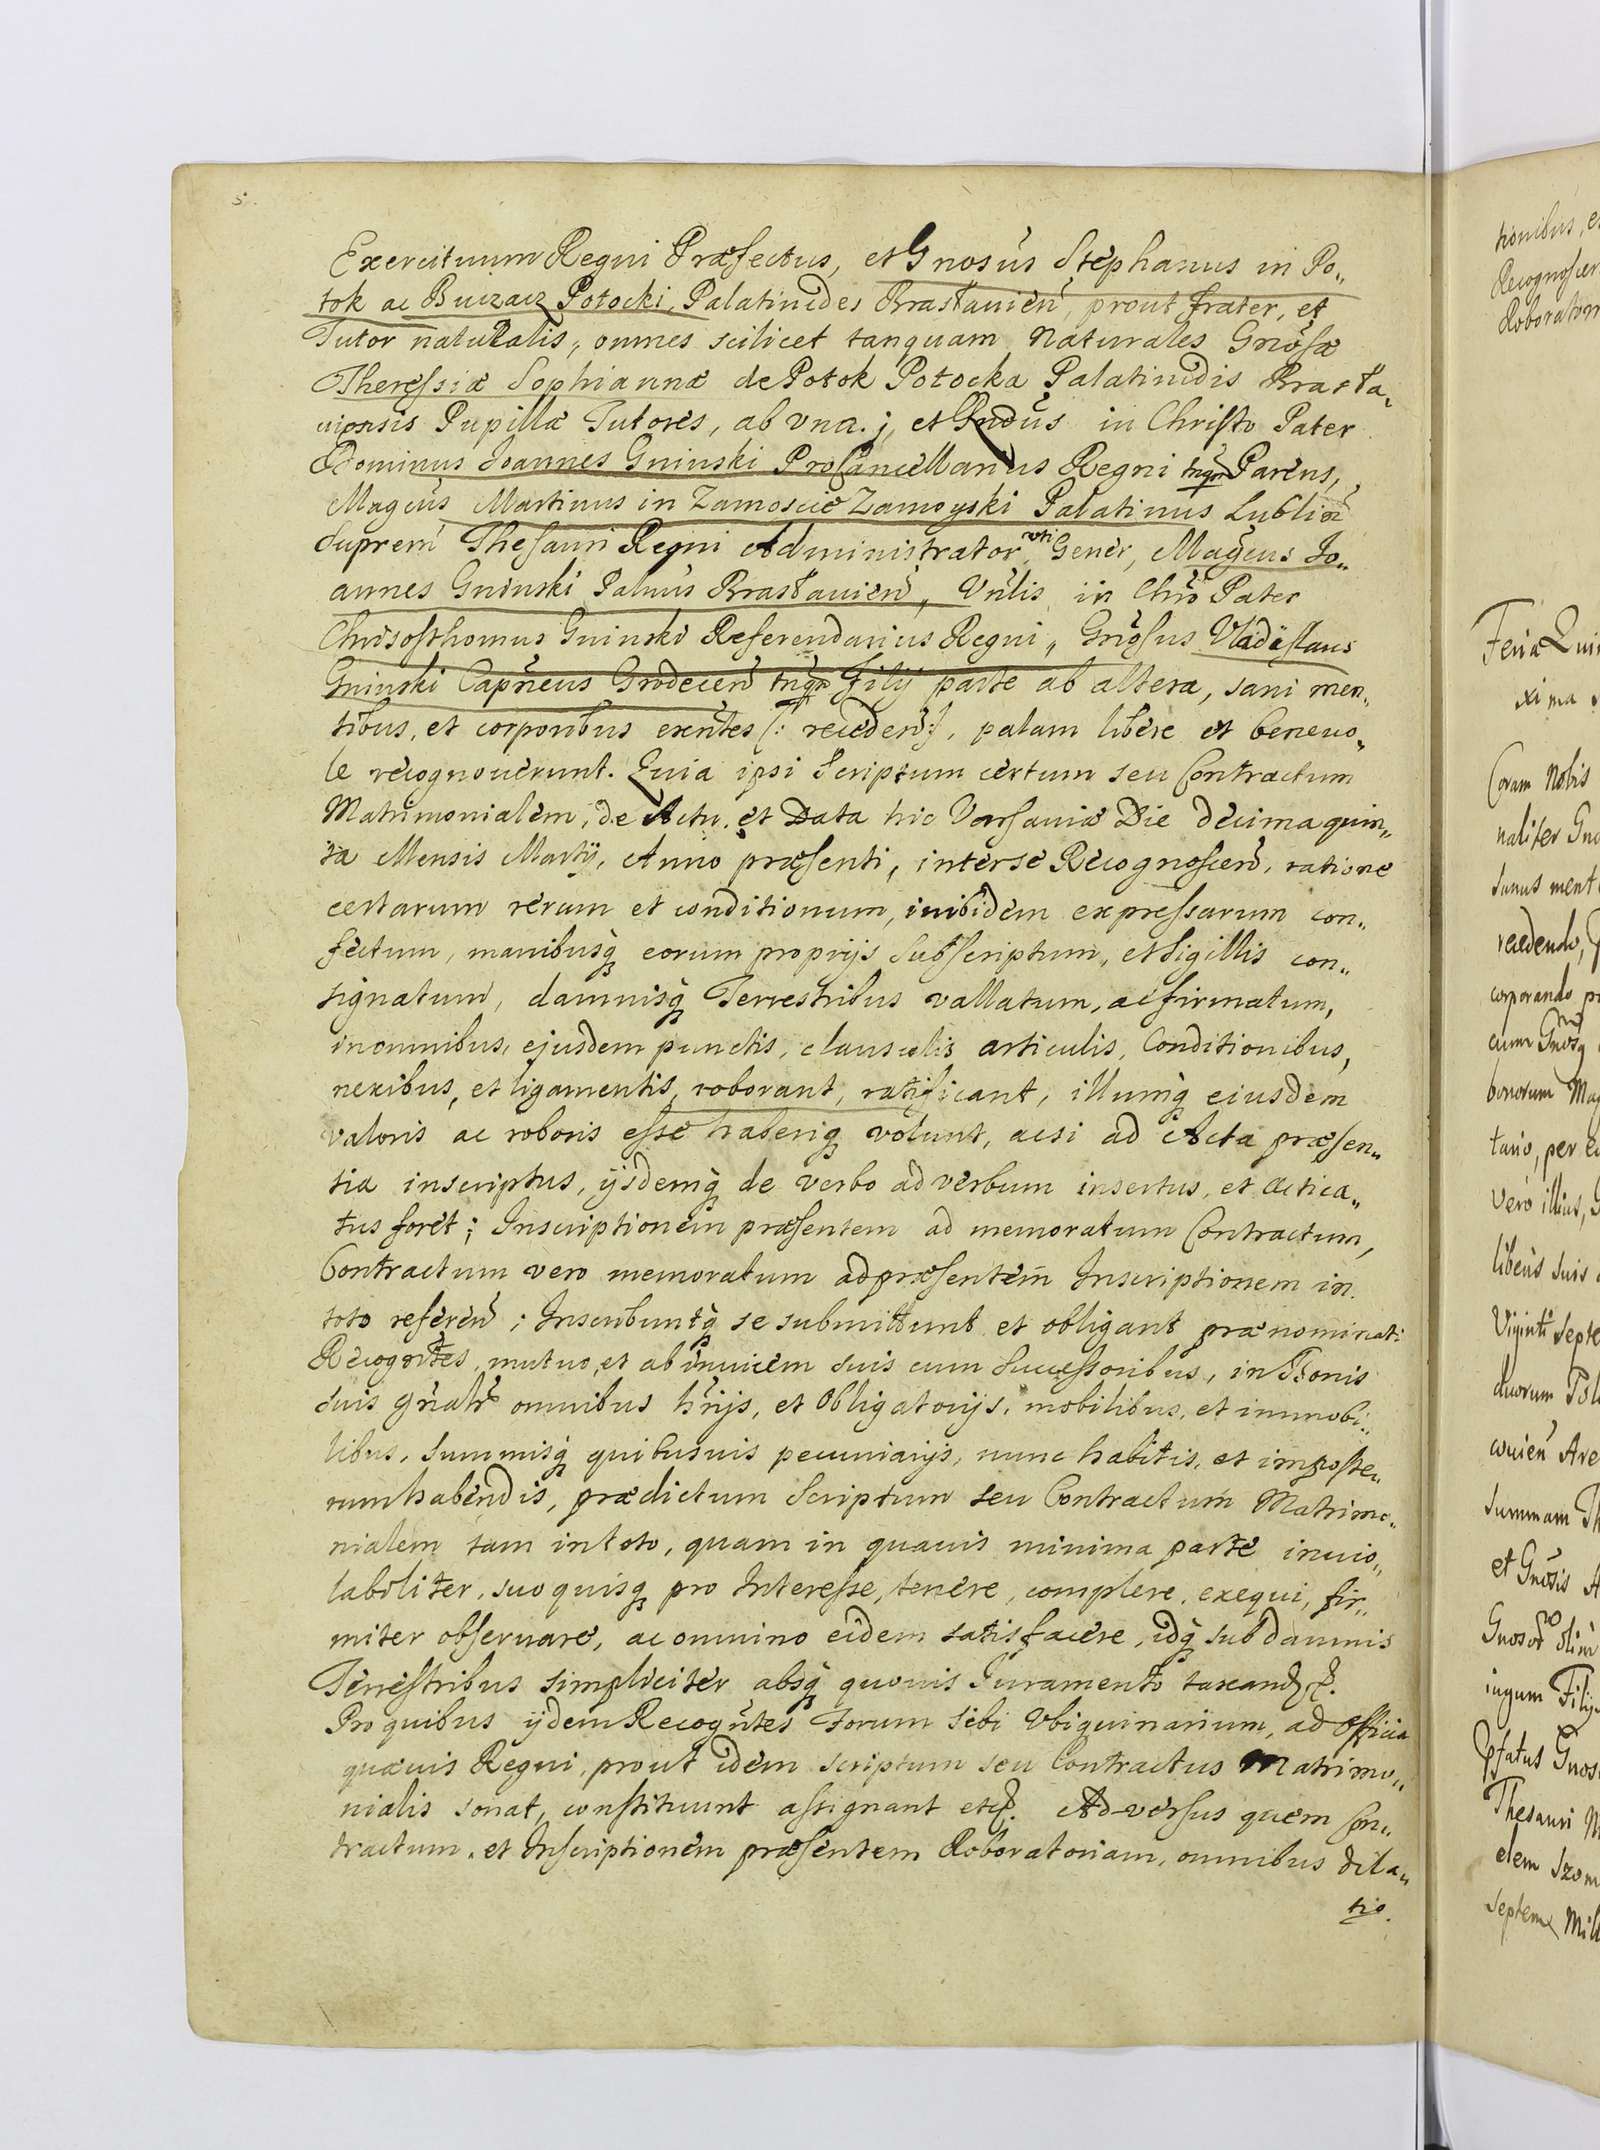 5.
Exercituum Regni Præfectus, et Gnosus Stephanus in Po„
tok ac Buczacz Potocki, Palatinides Brasłavien, prout frater, et
Tutor naturalis, omnes scilicet tanquam Naturales Gnosæ
Theressiæ Sophiannæ de Potok Potocka Palatinidis Brasła„
viensis Pupillæ Tutores, ab vna. j, et Rndus in Christo Pater
Dominus Joannes Gninski ProCancellarius Regni tnqm Parens,
Magcus Martinus in Zamoscie Zamoyski Palatinus Lublin
Supremi Thesauri Regni Administrator vti Gener, Magcus Jo„
annes Gninski Palnus Brasłavien, Vnlis in Chro Pater
Chrisosthomus Gninski Referendarius Regni, Gnosus Vladislaus
Gninski Capneus Grodecen tnqm Filij parte ab altera, sani men„
tibus, et corporibus exentes (: receden:), palam libere et beneuo„
le recognouerunt. Quia ipsi Scriptum certum seu Contractum
Matrimonialem, de Actu. et Data hic Varsauiæ Die decima quin„
ta Mensis Martij, Anno præsenti, inter se Recognoscen, ratione
certarum rerum et conditionum, inibidem expressarum con„
fectum, manibusq eorum proprijs Subscriptum, et Sigillis con„
signatum, damnisq Terrestribus vallatum, ac firmatum,
in omnibus, ejusdem punctis, clausulis articulis, Conditionibus,
nexibus, et ligamentis, roborant, ratificant, illumq eiusdem
valoris ac roboris esse haberiq volunt, acsi ad Acta præsen„
tia inscriptus, ijsdemq de verbo ad verbum insertus, et actica„
tus foret; Inscriptionem præsentem ad memoratum Contractum,
Contractum vero memoratum ad præsentem Inscriptionem in
toto referen; Inscribuntq se submittunt et obligant prænominati
Recogntes, mutuo, et ab inuicem suis cum Successoribus, in Bonis
suis gnalr omnibus hrijs, et Obligatorijs, mobilibus, et immobi„
libus, Summisq quibusuis pecuniarijs, nunc habitis, et imposte„
rum habendis, prædictum Scriptum seu Contractum Matrimo„
nialem tam in toto, quam in quauis minima parte inuio„
labiliter, suo quisq pro Interesse, tenere, complere, exequi, fir„
miter obseruare, ac omnino eidem satisfacere, idq sub damnis
Terrestribus simpliciter absq quouis Iuramento taxand
Pro quibus ijdem Recogntes Forum sibi Vbiquinarium, ad Officia
quæuis Regni, prout idem scriptum seu Contractus Matrimo„
nialis sonat, constituunt assignant etc. Aduersus quem Con„
tractum, et Inscriptionem præsentem Roboratoriam, omnibus dila„
tio.
tionibus, e
Recognoscen
Roboratori
Feria Quin
xima
Coram Nobis
naliter Gno
Sanus mente
recedendo,
corporando
cum Gnos
bonorum Mag
tario, per e
vero illius,
libeus suis
Viginti Septe
duorum Pol
couien Are
Summam Th
et Gnosis A
Gnosor olim
iugum Filij
Pfatus Gnos
Thesauri M
dem Szom
Septem Mil